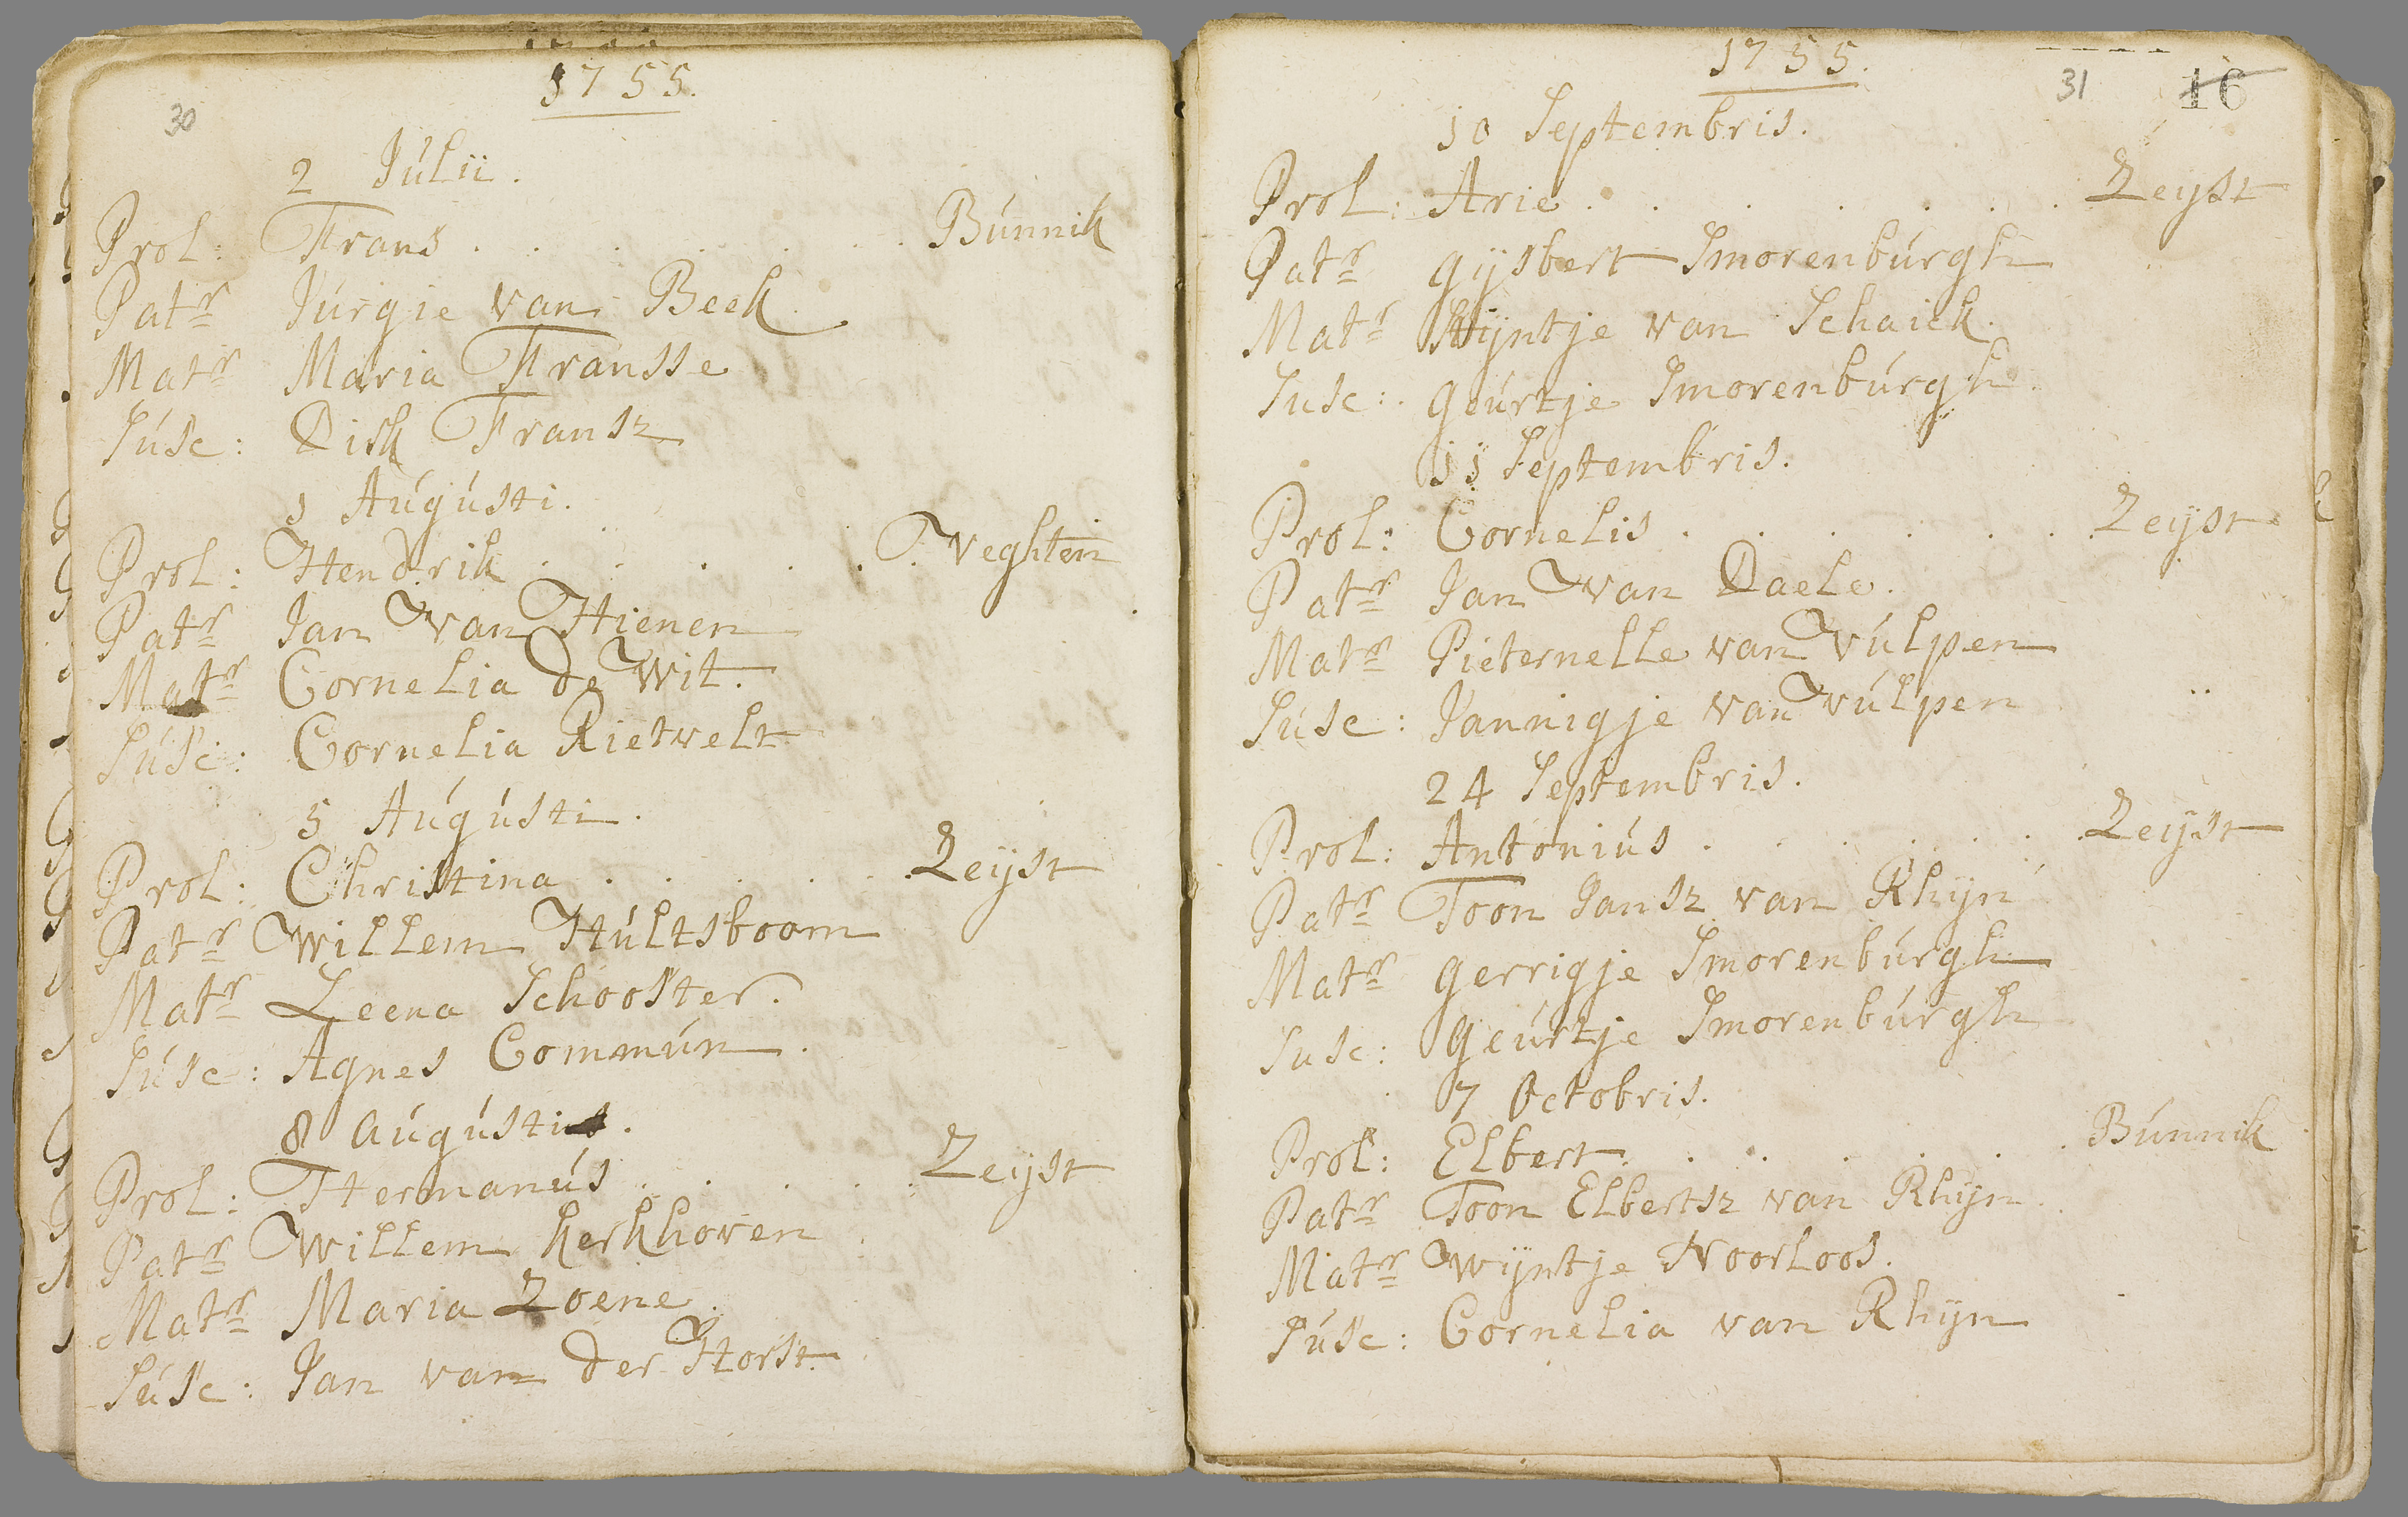 1755.
30
2 Júlii.
Prol: Frans . . . . . . Búnnik
Patr Júrgie van Beek
Matr Maria Fransse
Súsc: Dirk Fransz
1 Aúgústi.
Prol: Hendrik . . . . . Veghten
Patr Jan van Hienen
Matr Cornelia de Wit.
Súsc: Cornelia Rietvelt
5 Aúgústi.
Prol: Christina . . . . . Zeijst
Patr Willem Húltsboom
Matr Leena Schooster.
Súsc: Agnes Commún.
8 Aúgústi.
Prol: Hermanús . . . . . Zeijst
Patr Willem Kerkhoven
Matr Maria Zoene.
Súsc: Jan van der Horst.
1755.
31 16
10 Septembris.
Prol: Arie . . . . . . Zeijst
Patr Gijsbert Smorenbúrgh
Matr Wijntje van Schaick.
Susc: Geúrtje Smorenbúrgh
11 Septembris.
Prol: Cornelis . . . . . . Zeijst
Patr Jan van Daele.
Matr Pieternelle van Vúlpen
Súsc: Jannigje van Vúlpen
24 Septembris.
Prol: Antoniús . . . . . . Zeijst
Patr Toon Jansz van Rhijn
Matr Gerrigje Smorenbúrgh
Susc: Geúrtje Smorenbúrgh
7 Octobris.
Prol: Elbert . . . . . . Búnnik
Patr Toon Elbertsz van Rhijn
Matr Wijntje Noorloos.
Súsc: Cornelia van Rhijn